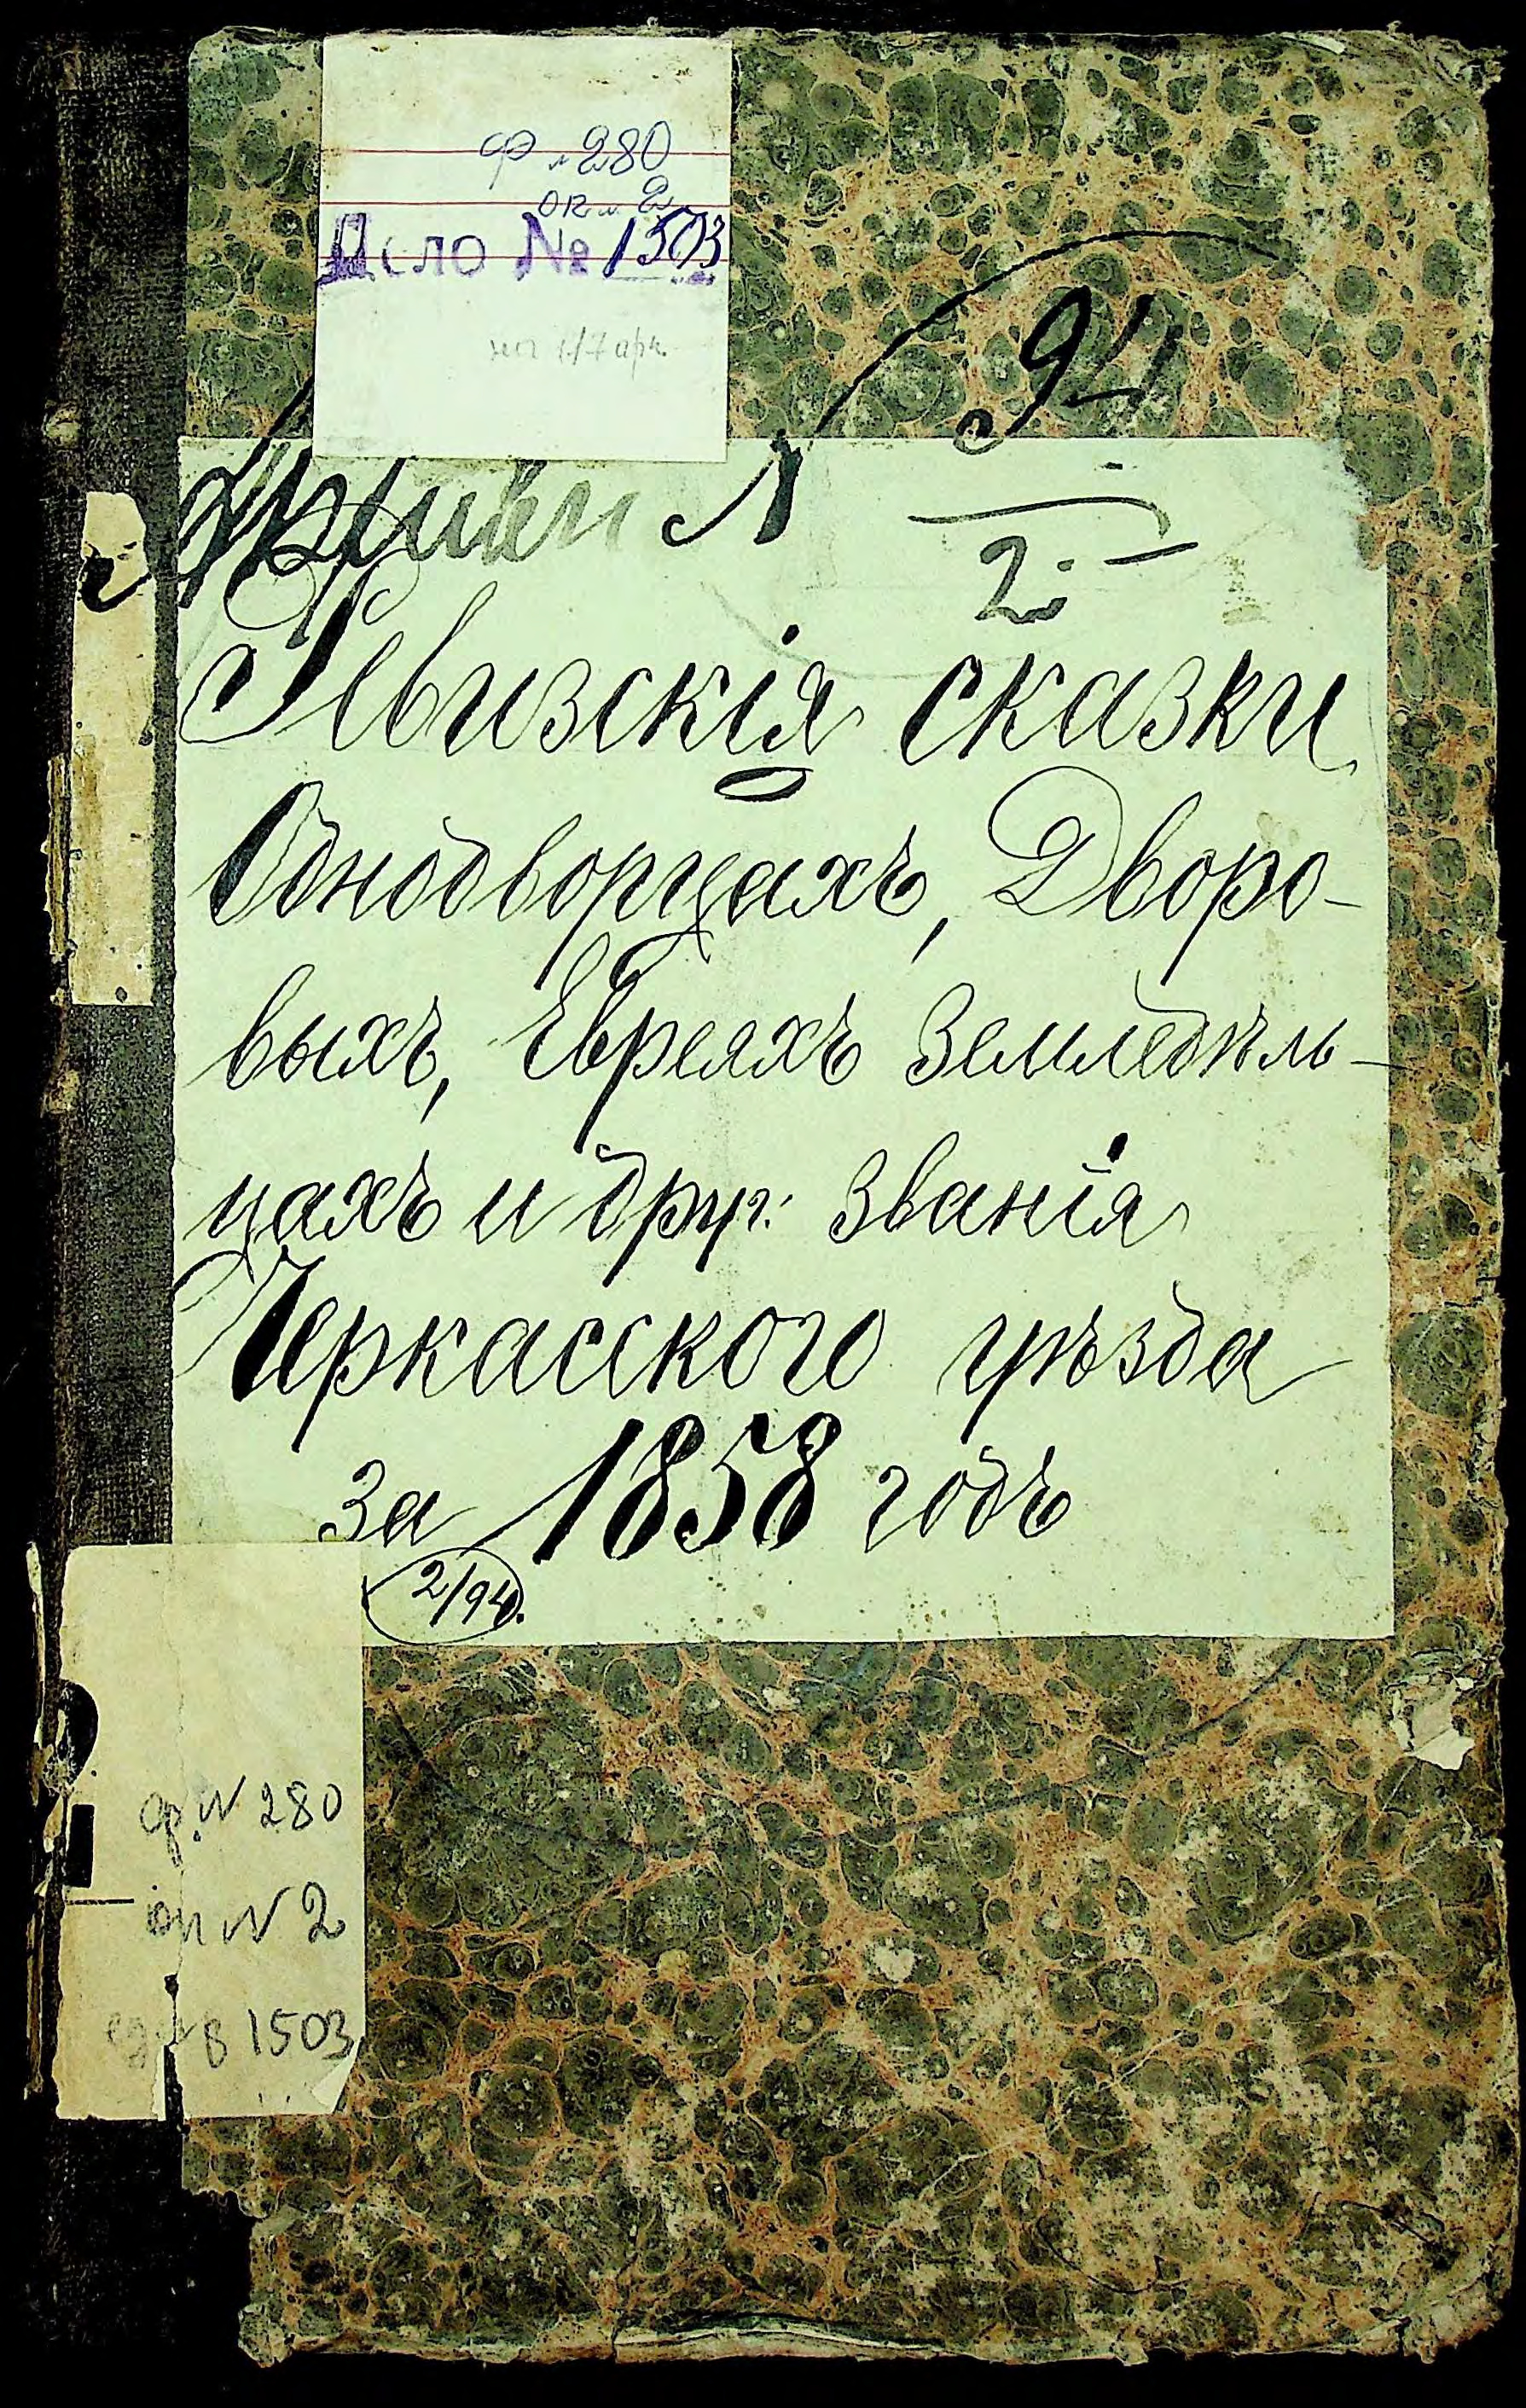 ф № 280
оп № 2
Дело № 1503
94
№
2.
Ревизскія сказки
Однодворцахъ, Дворо-
выхъ, Евреяхъ Земледѣль-
цахъ и друг: званія
Черкасского уѣзда
за 1858 годъ
2/94.
ф. № 280
оп № 2
1503